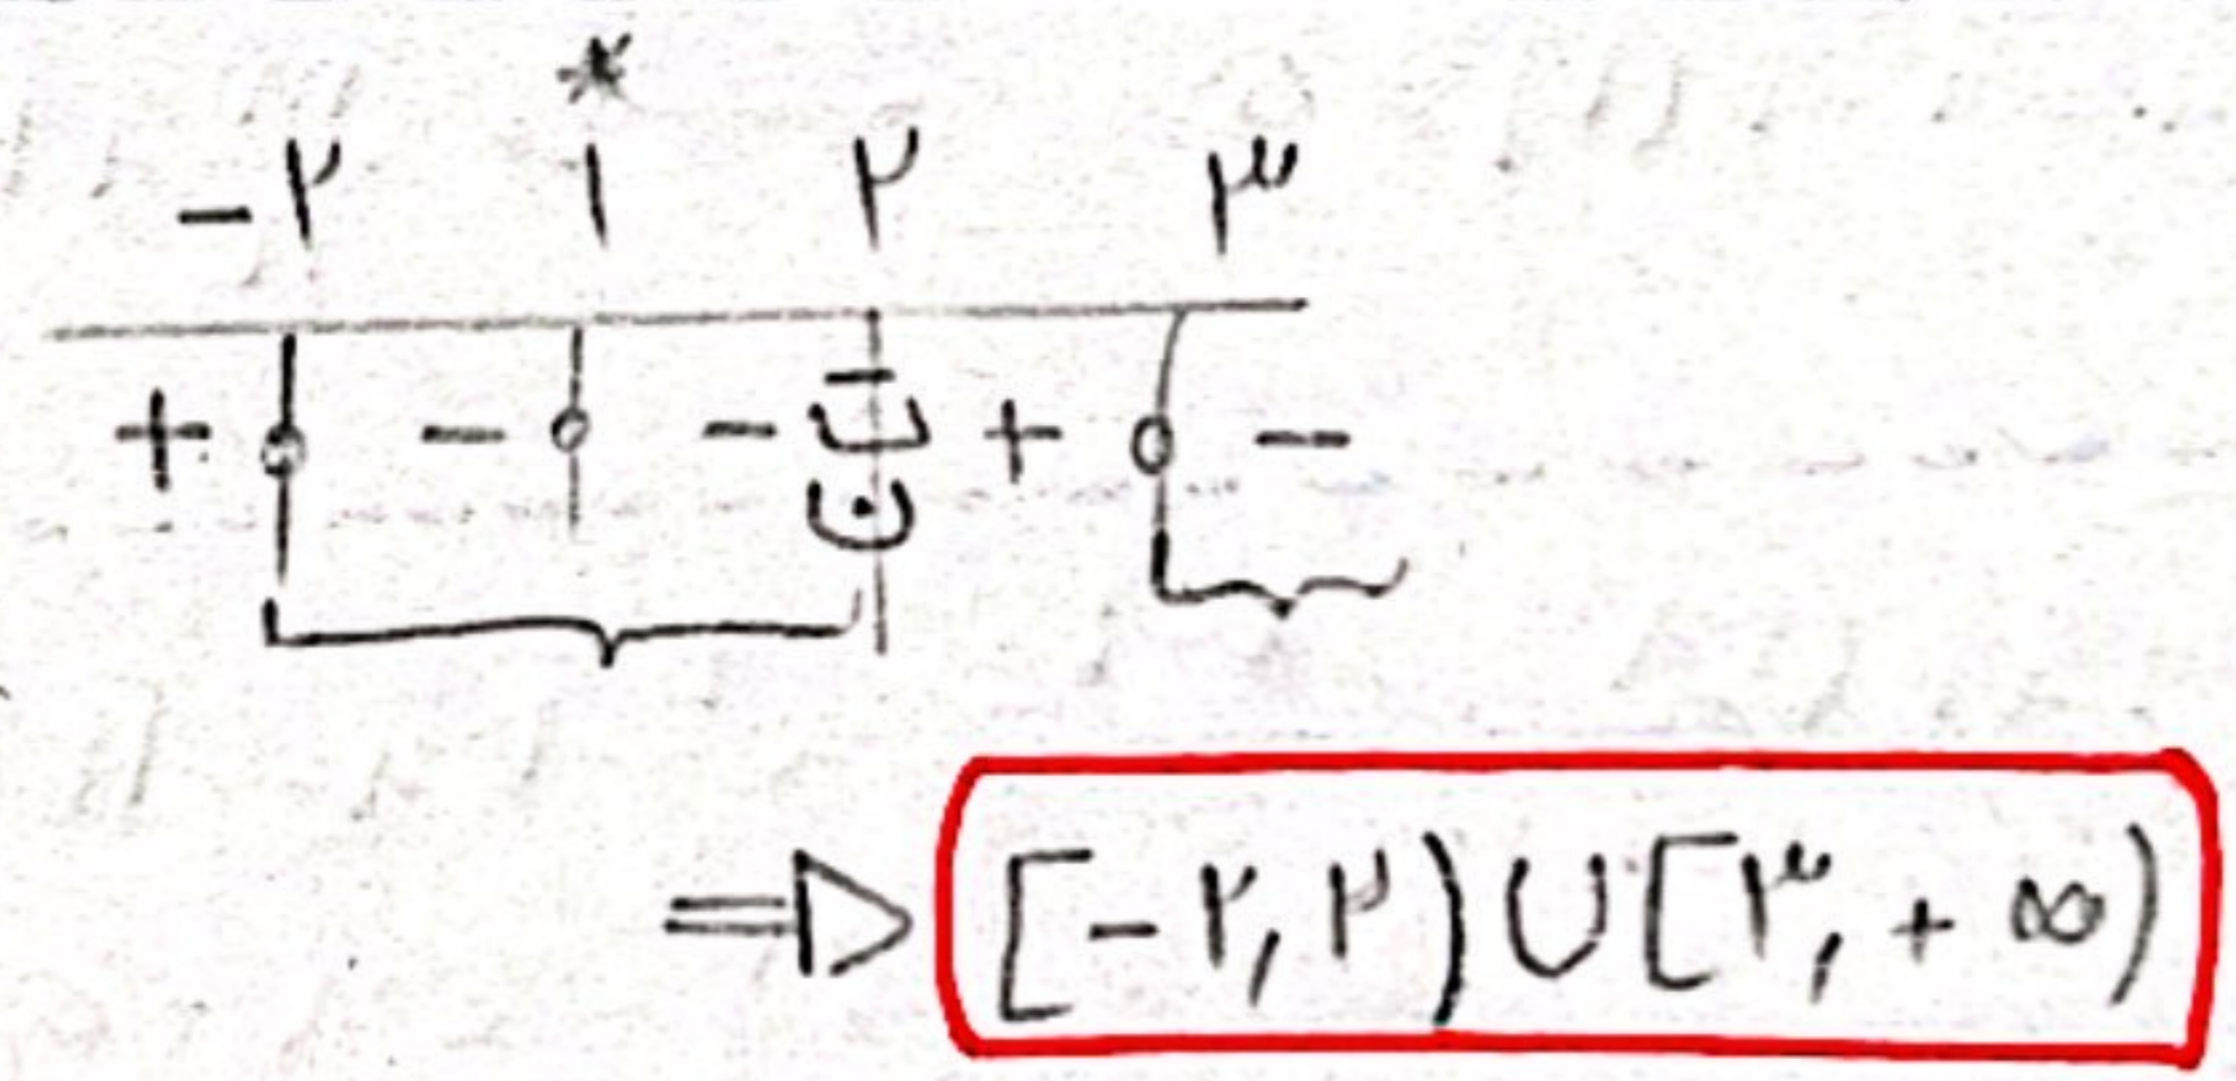 *
-۲ ۱ ۲ ۳
+ - - تن + -
⇒ [-۲, ۲) ∪ [۳, +∞)